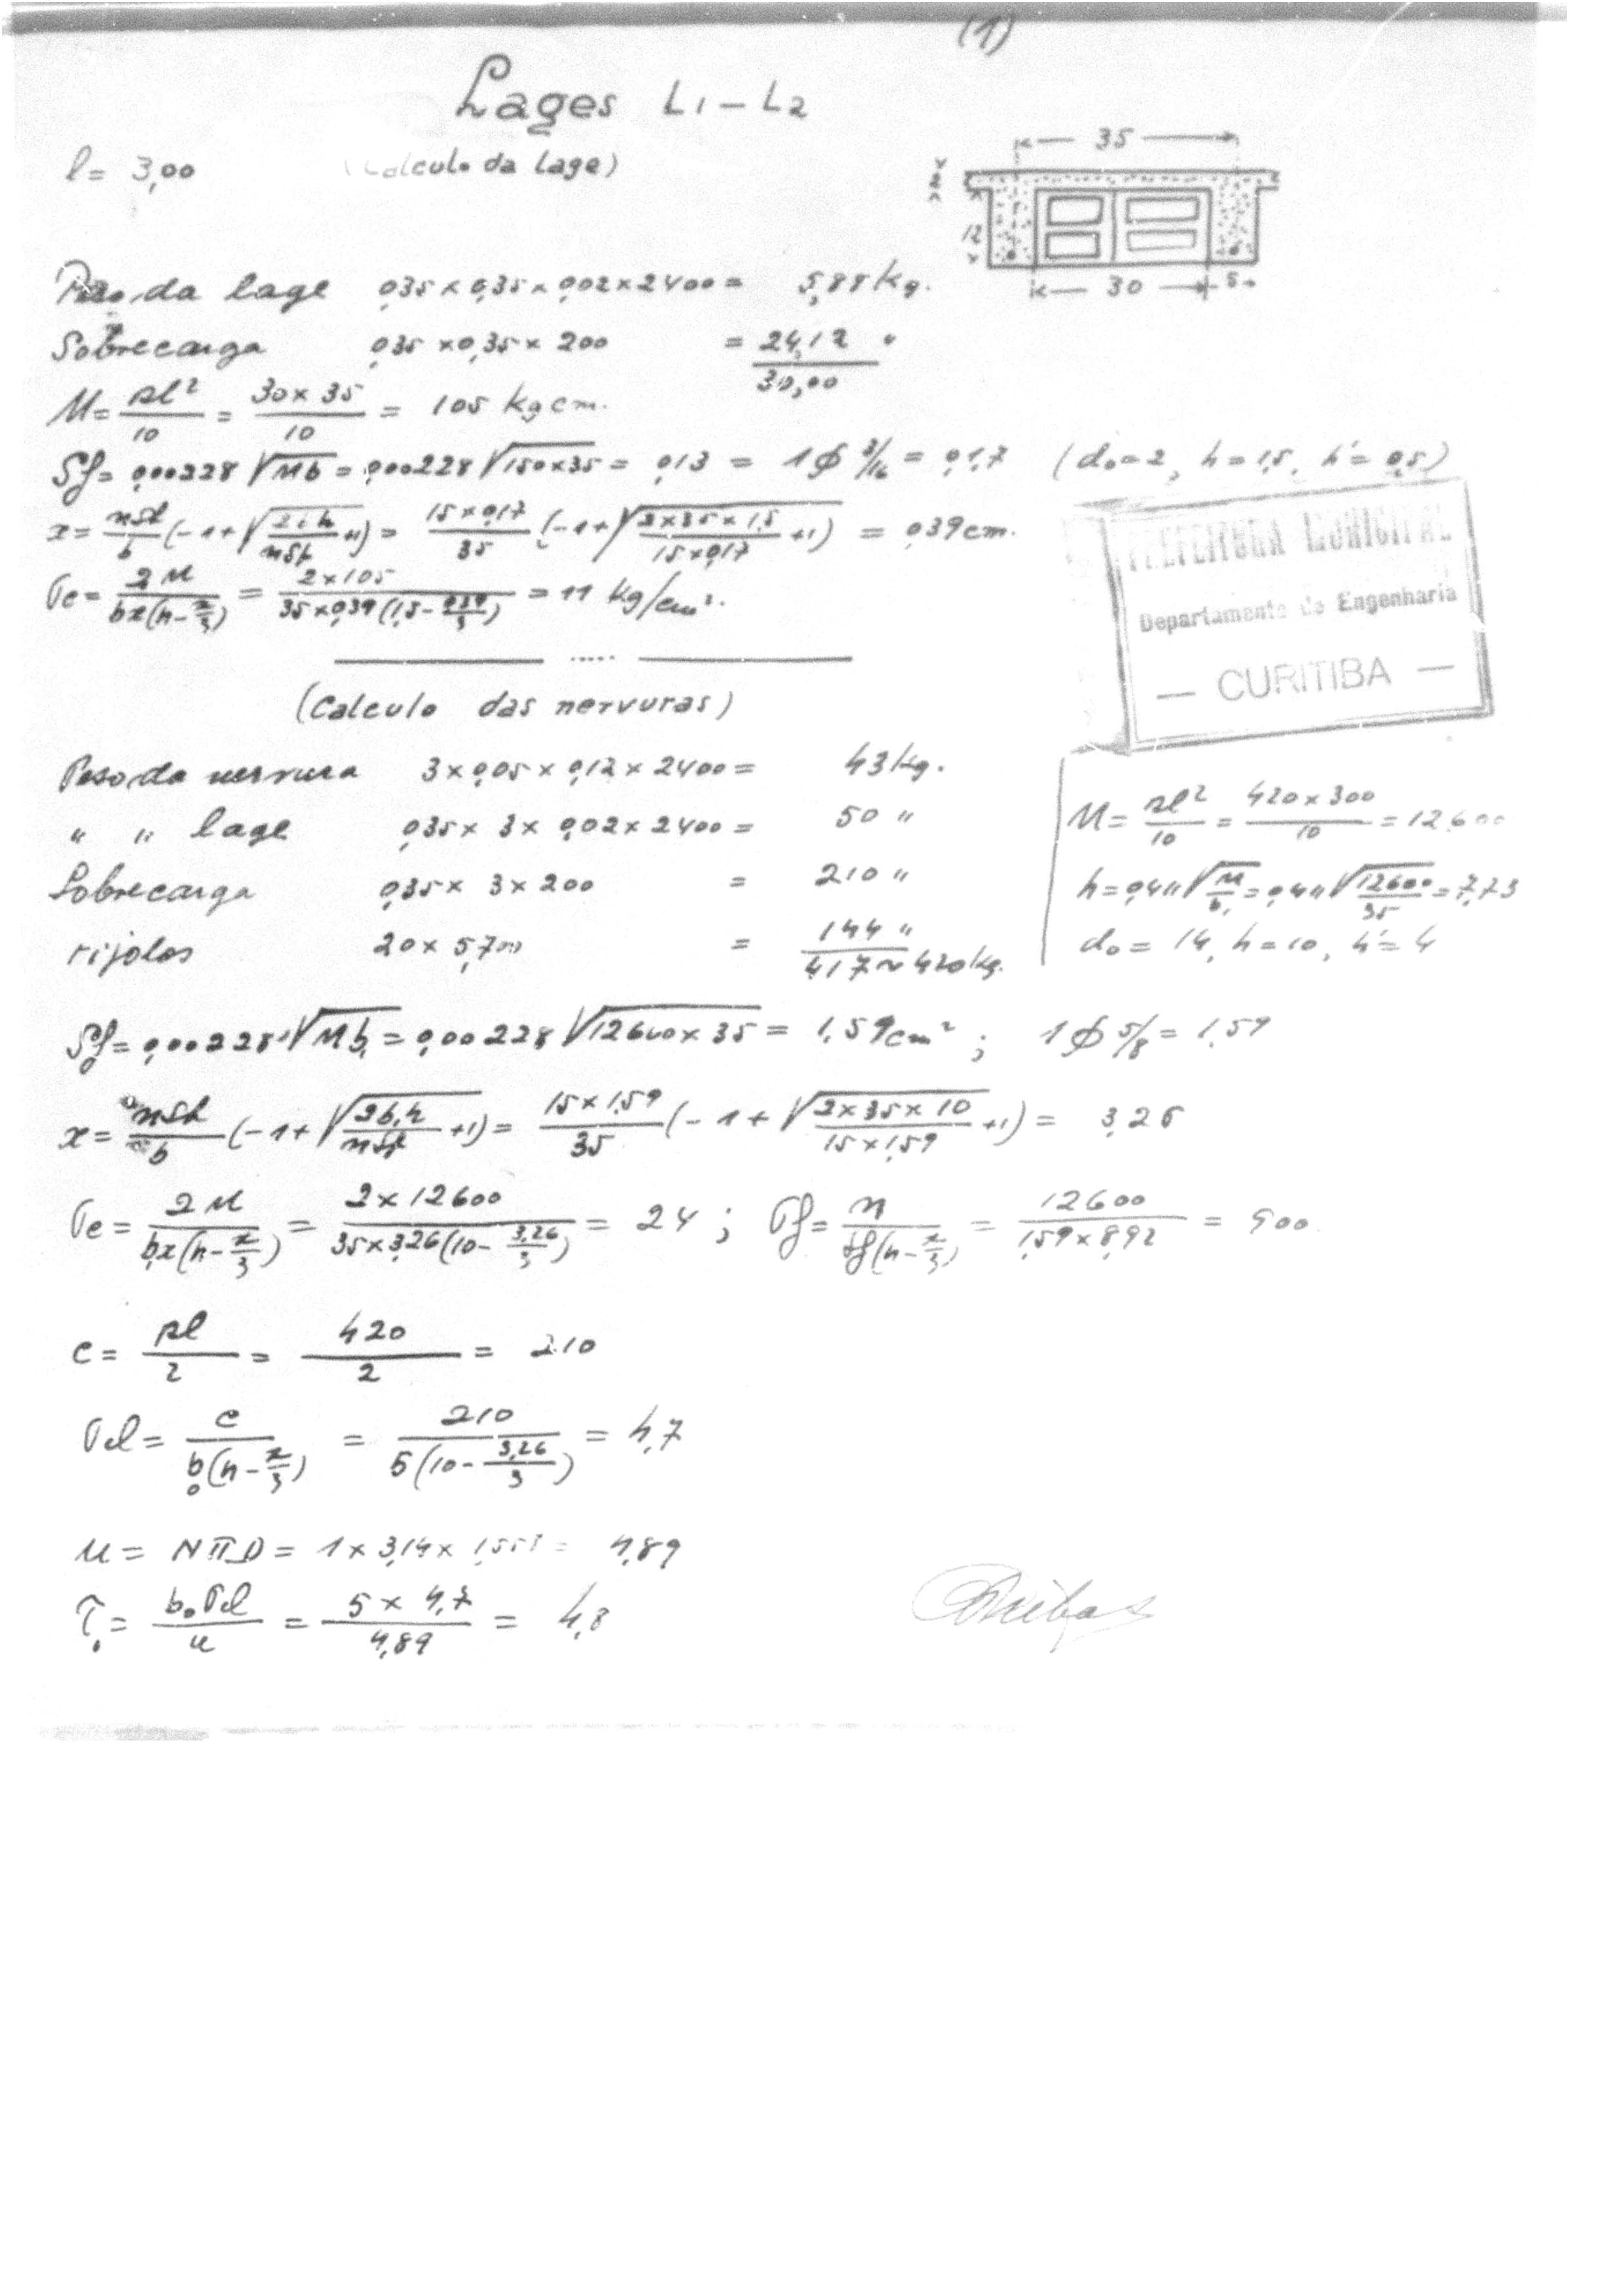 (1)
Lages L1 – L2
l = 3,00 (Calculo da lage)
35
2
12
30 5
Peso da lage 0,35 × 0,35 × 0,02 × 2400 = 5,88 kg.
Sobrecarga 0,35 × 0,35 × 200 = 24,12 "
30,00
M = pl²/10 = 30 × 35/10 = 105 kg cm.
Sf = 0,00228 √Mb = 0,00228 √150×35 = 0,13 = 1 ϕ 3/16 = 0,17 (d₀ = 2, h = 1,5, h' = 0,5)
x = nSf/b (-1 + √(2bh/nSf +1)) = 15 × 0,17/35 (-1 + √(2 × 35 × 1,5/15 × 0,17 +1)) = 0,39 cm.
σc = 2M/bx(h - x/3) = 2 × 105/35 × 0,39 (1,5 - 0,39/3) = 11 kg/cm².
PREFEITURA MUNICIPAL
Departamento de Engenharia
— CURITIBA —
(Calculo das nervuras)
Peso da nervura 3 × 0,05 × 0,12 × 2400 = 43 kg.
" " lage 0,35 × 3 × 0,02 × 2400 = 50 "
Sobrecarga 0,35 × 3 × 200 = 210 "
tijolos 20 × 5,7 = 144 "
417 ~ 420 kg.
M = pl²/10 = 420 × 300/10 = 12600
h = 0,411 √M/b, = 0,411 √12600/35 = 7,73
d₀ = 14, h = 10, h' = 4
Sf = 0,00228 √Mb, = 0,00228 √12600 × 35 = 1,59 cm² ; 1 ϕ 5/8 = 1,59
x = nSf/b (-1 + √(2b,h/nSf +1)) = 15 × 1,59/35 (-1 + √(2 × 35 × 10/15 × 1,59 +1)) = 3,26
σc = 2M/b,x(h - x/3) = 2 × 12600/35 × 3,26 (10 - 3,26/3) = 24 ; σf = M/Sf(h - x/3) = 12600/1,59 × 8,92 = 900
C = pl/2 = 420/2 = 210
σd = C/b₀(h - x/3) = 210/5(10 - 3,26/3) = 4,7
u = NπD = 1 × 3,14 × = 4,89
τ, = b₀σd/u = 5 × 4,7/4,89 = 4,8